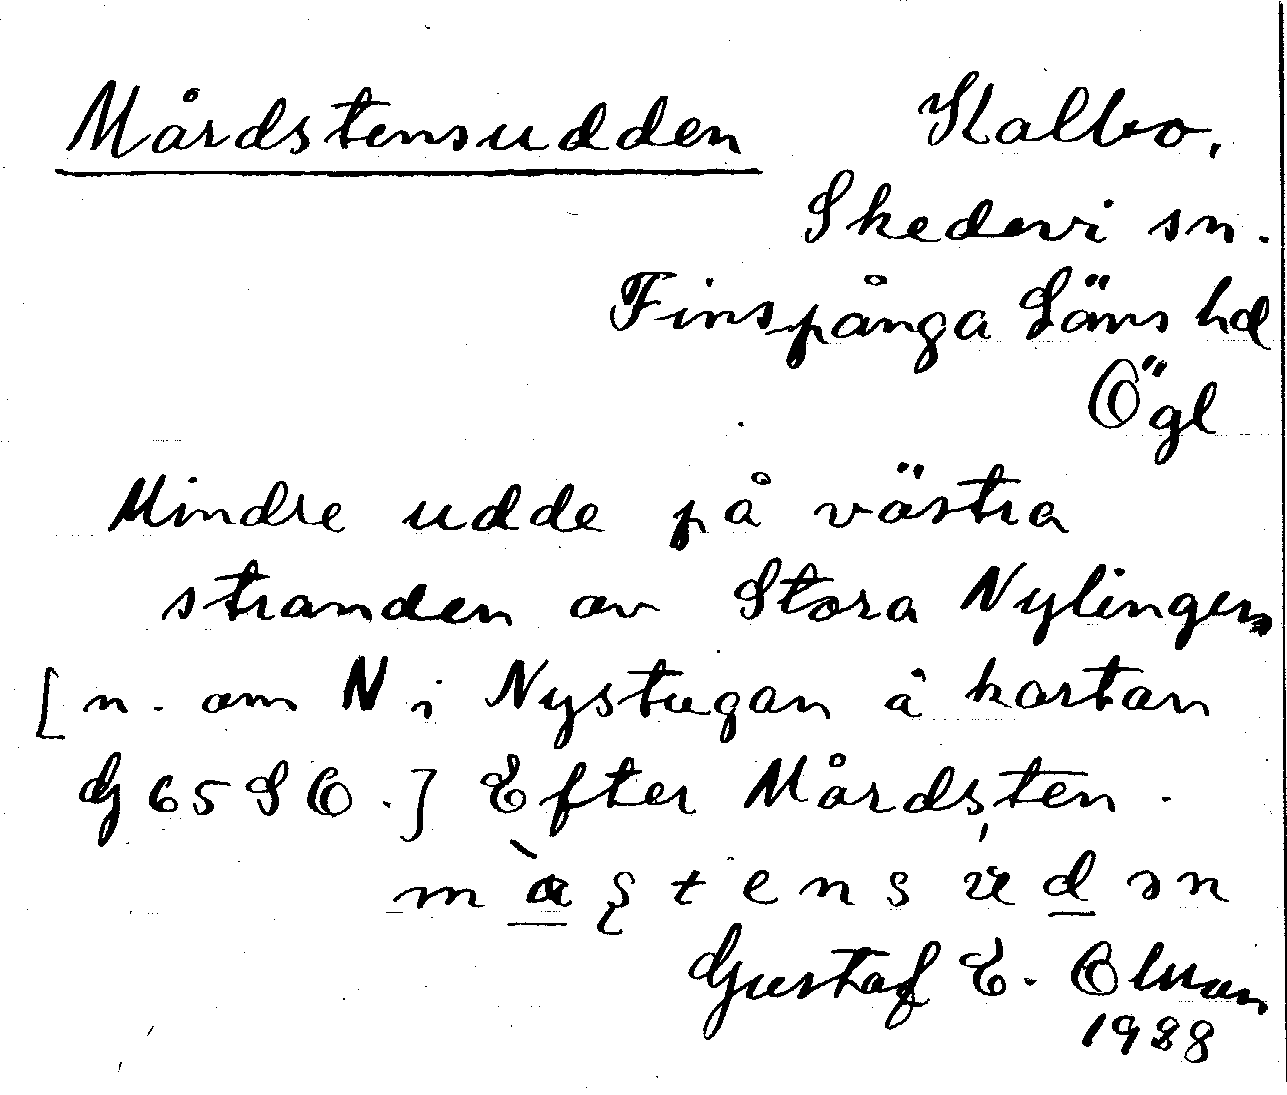 Mårdstensudden Kalbo,
Skedevi sn.
Finspånga Läns hd
Ögl
Mindre udde på västra
stranden av Stora Nylingen
[n. om N i Nystugan å kartan
G 65 SO.] Efter Mårdsten.
Gustaf E. Olman
1928